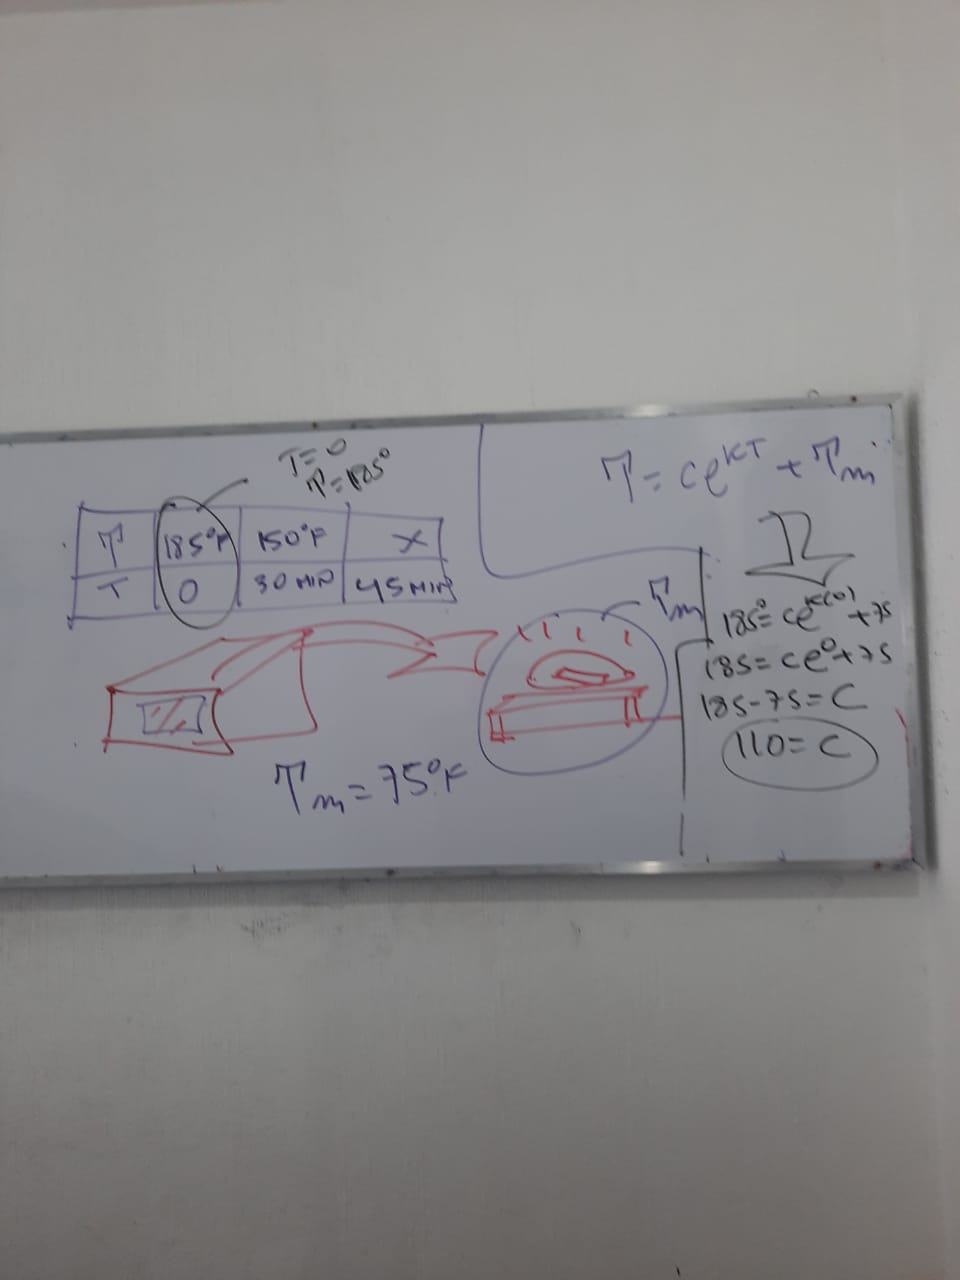 T=0
T=185°
T 185°F 150°F X
T 0 30 MIN 45 MIN
Tm
Tm=75°F
T=ce^KT+Tm
185°=ce^K(0)+75
185=ce^0+75
185-75=C
110=C